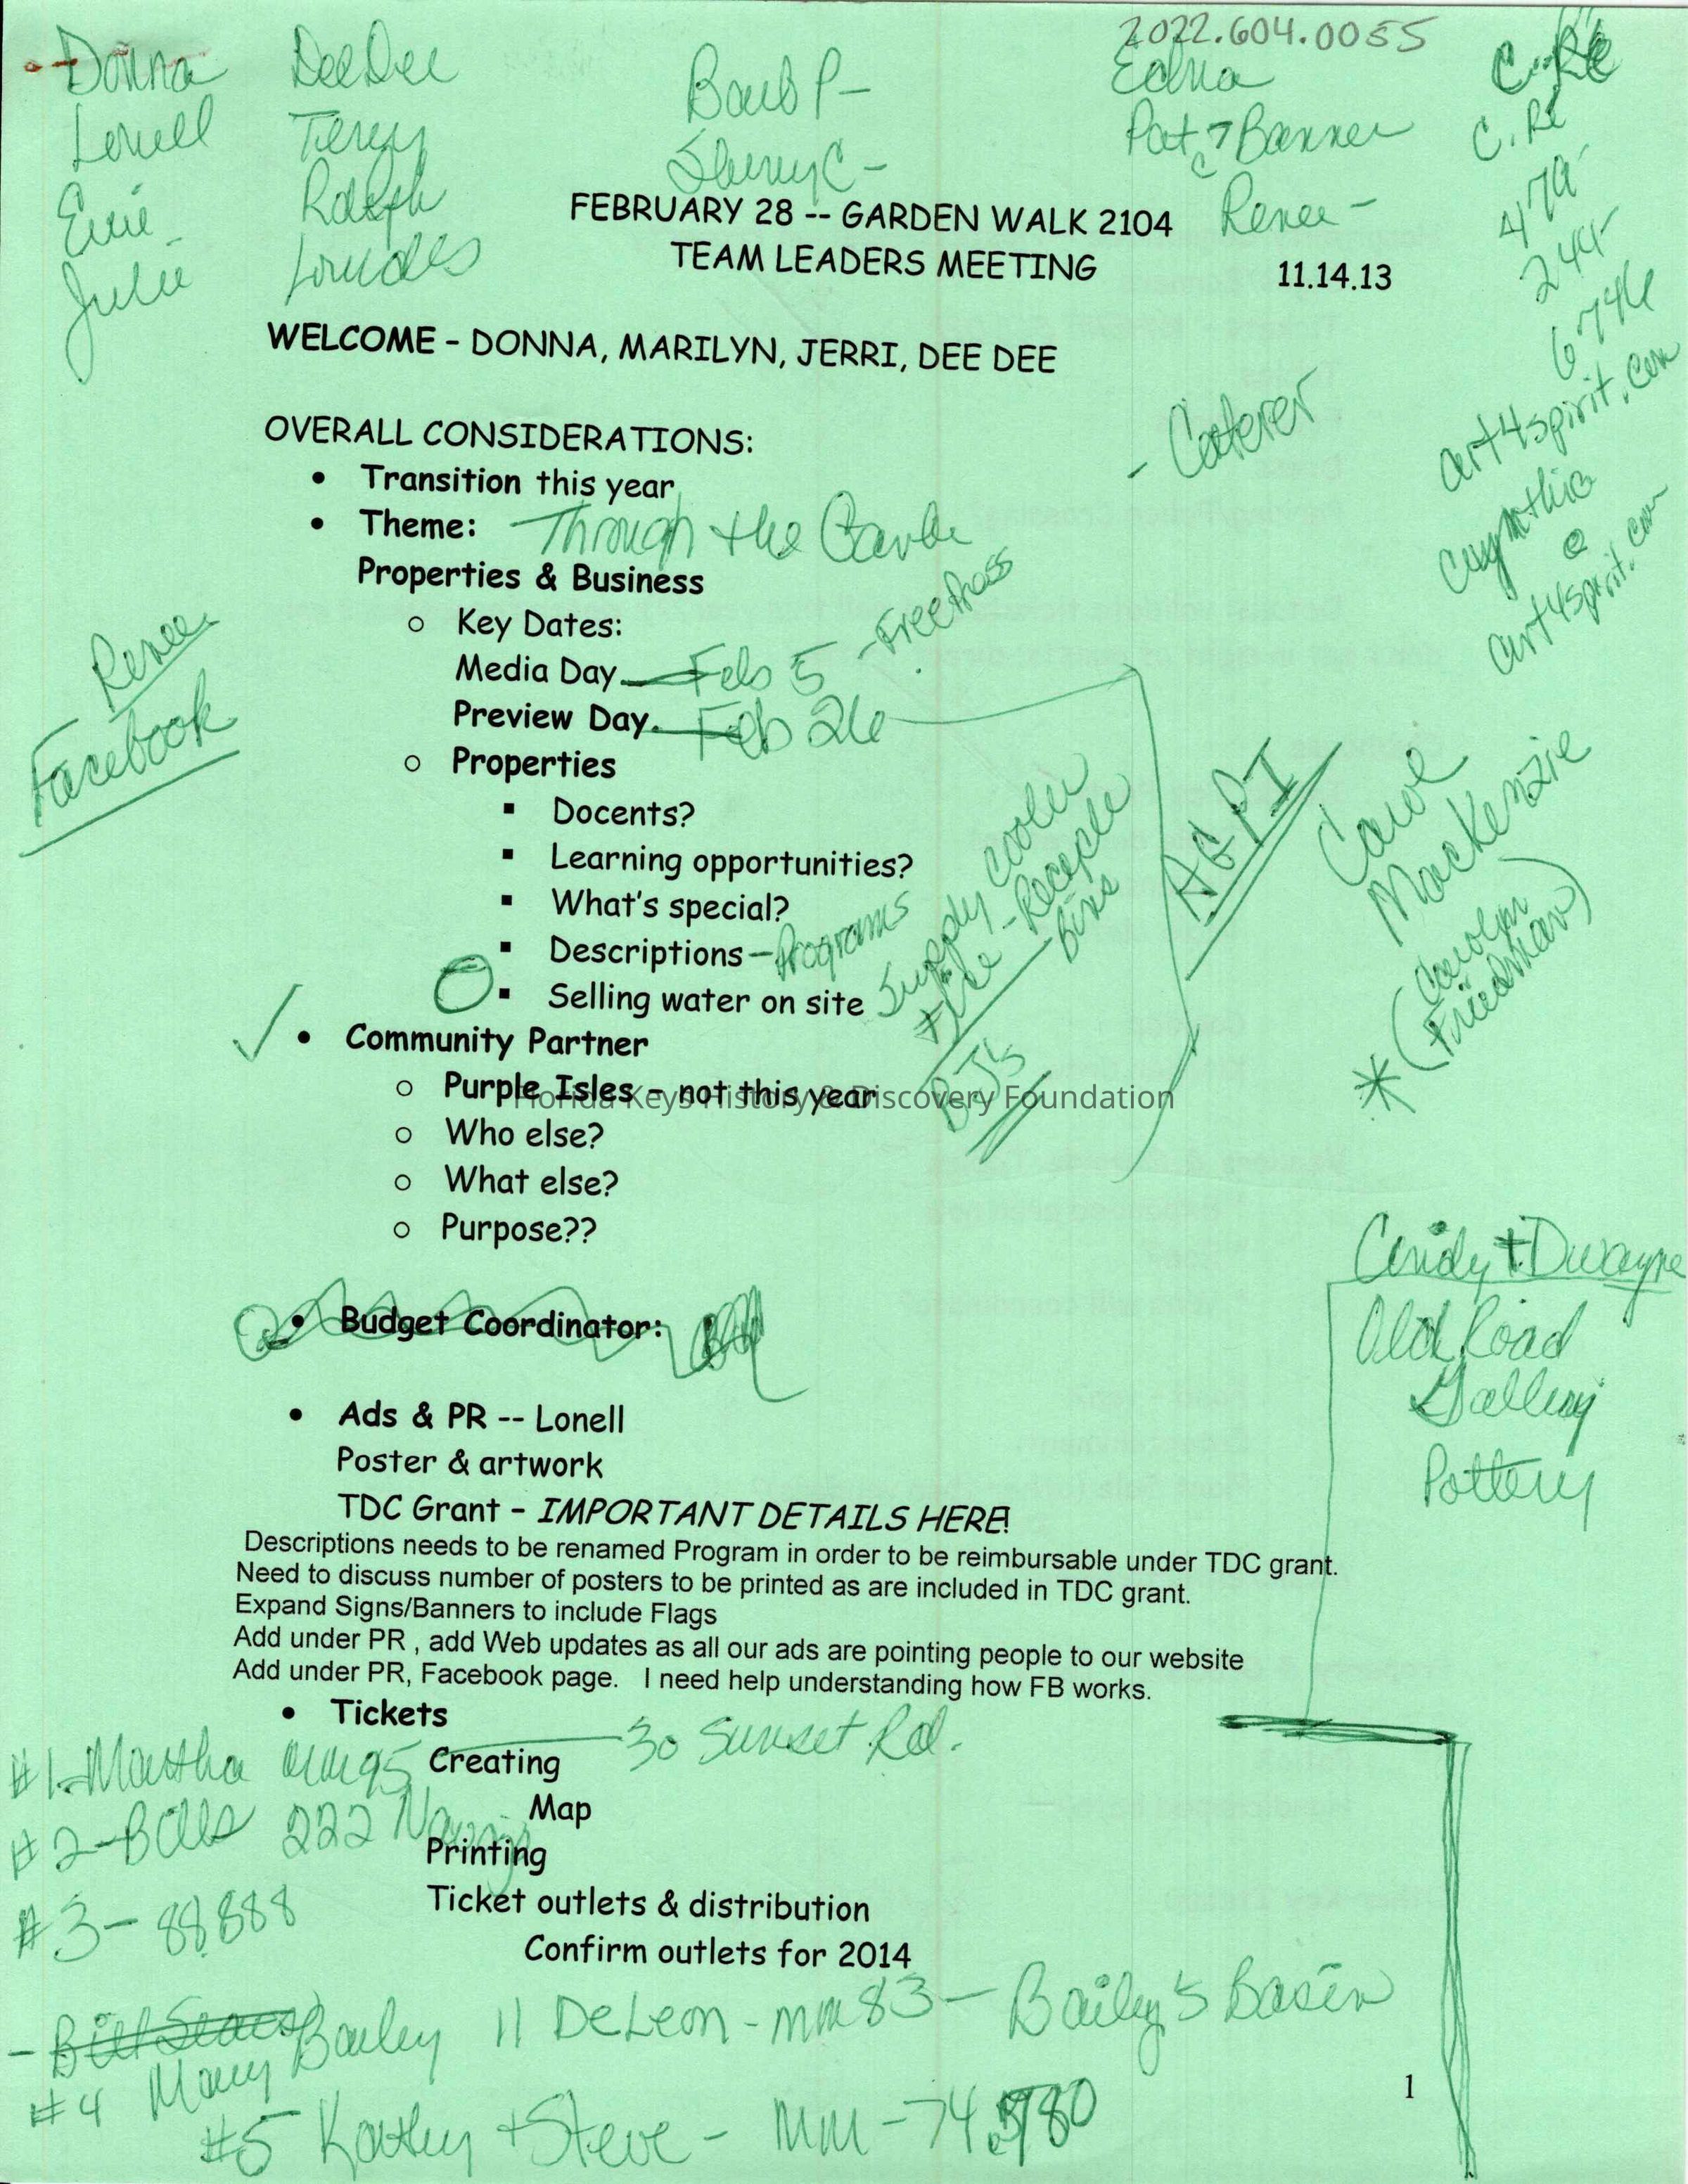 2022.604.0055
Donna DeeDee Barb P- Edna
Lonell Terry Sherry C- Pat C Banner C. Re
Ralph Renee-
Julie Lourdes
FEBRUARY 28 -- GARDEN WALK 2104
TEAM LEADERS MEETING 11.14.13
474-
244-
6746
art4spirit.com
@
art4spirit.com
WELCOME - DONNA, MARILYN, JERRI, DEE DEE
- Caterer
OVERALL CONSIDERATIONS:
• Transition this year
• Theme: Through the
Properties & Business
o Key Dates:
Media Day - Feb 5 - Free Press
Preview Day. - Feb 26
o Properties
▪ Docents?
▪ Learning opportunities?
▪ What's special?
▪ Descriptions - Programs
▪ Selling water on site
Supply cooler
+ Ice - Recycle
bins
BJ's
Renee
Facebook
AGPI
Carol
MacKenzie
* (Carolyn
Friedman)
✓ • Community Partner
o Purple Isles - not this year
Florida Keys History & Discovery Foundation
o Who else?
o What else?
o Purpose??
Cindy + Dwayne
Old Road
Gallery
Pottery
• Budget Coordinator:
• Ads & PR -- Lonell
Poster & artwork
TDC Grant - IMPORTANT DETAILS HERE!
Descriptions needs to be renamed Program in order to be reimbursable under TDC grant.
Need to discuss number of posters to be printed as are included in TDC grant.
Expand Signs/Banners to include Flags
Add under PR , add Web updates as all our ads are pointing people to our website
Add under PR, Facebook page. I need help understanding how FB works.
• Tickets
#1-Martha mm95 30 Sunset Rd.
Creating
Map
#2-Bills 222
Printing
#3- 88888
Ticket outlets & distribution
Confirm outlets for 2014
- Bill Sears
#4 Mary Bailey 11 DeLeon - mm83 - Baily's Basin
#5 Kathy + Steve - MM-74.5 780
1